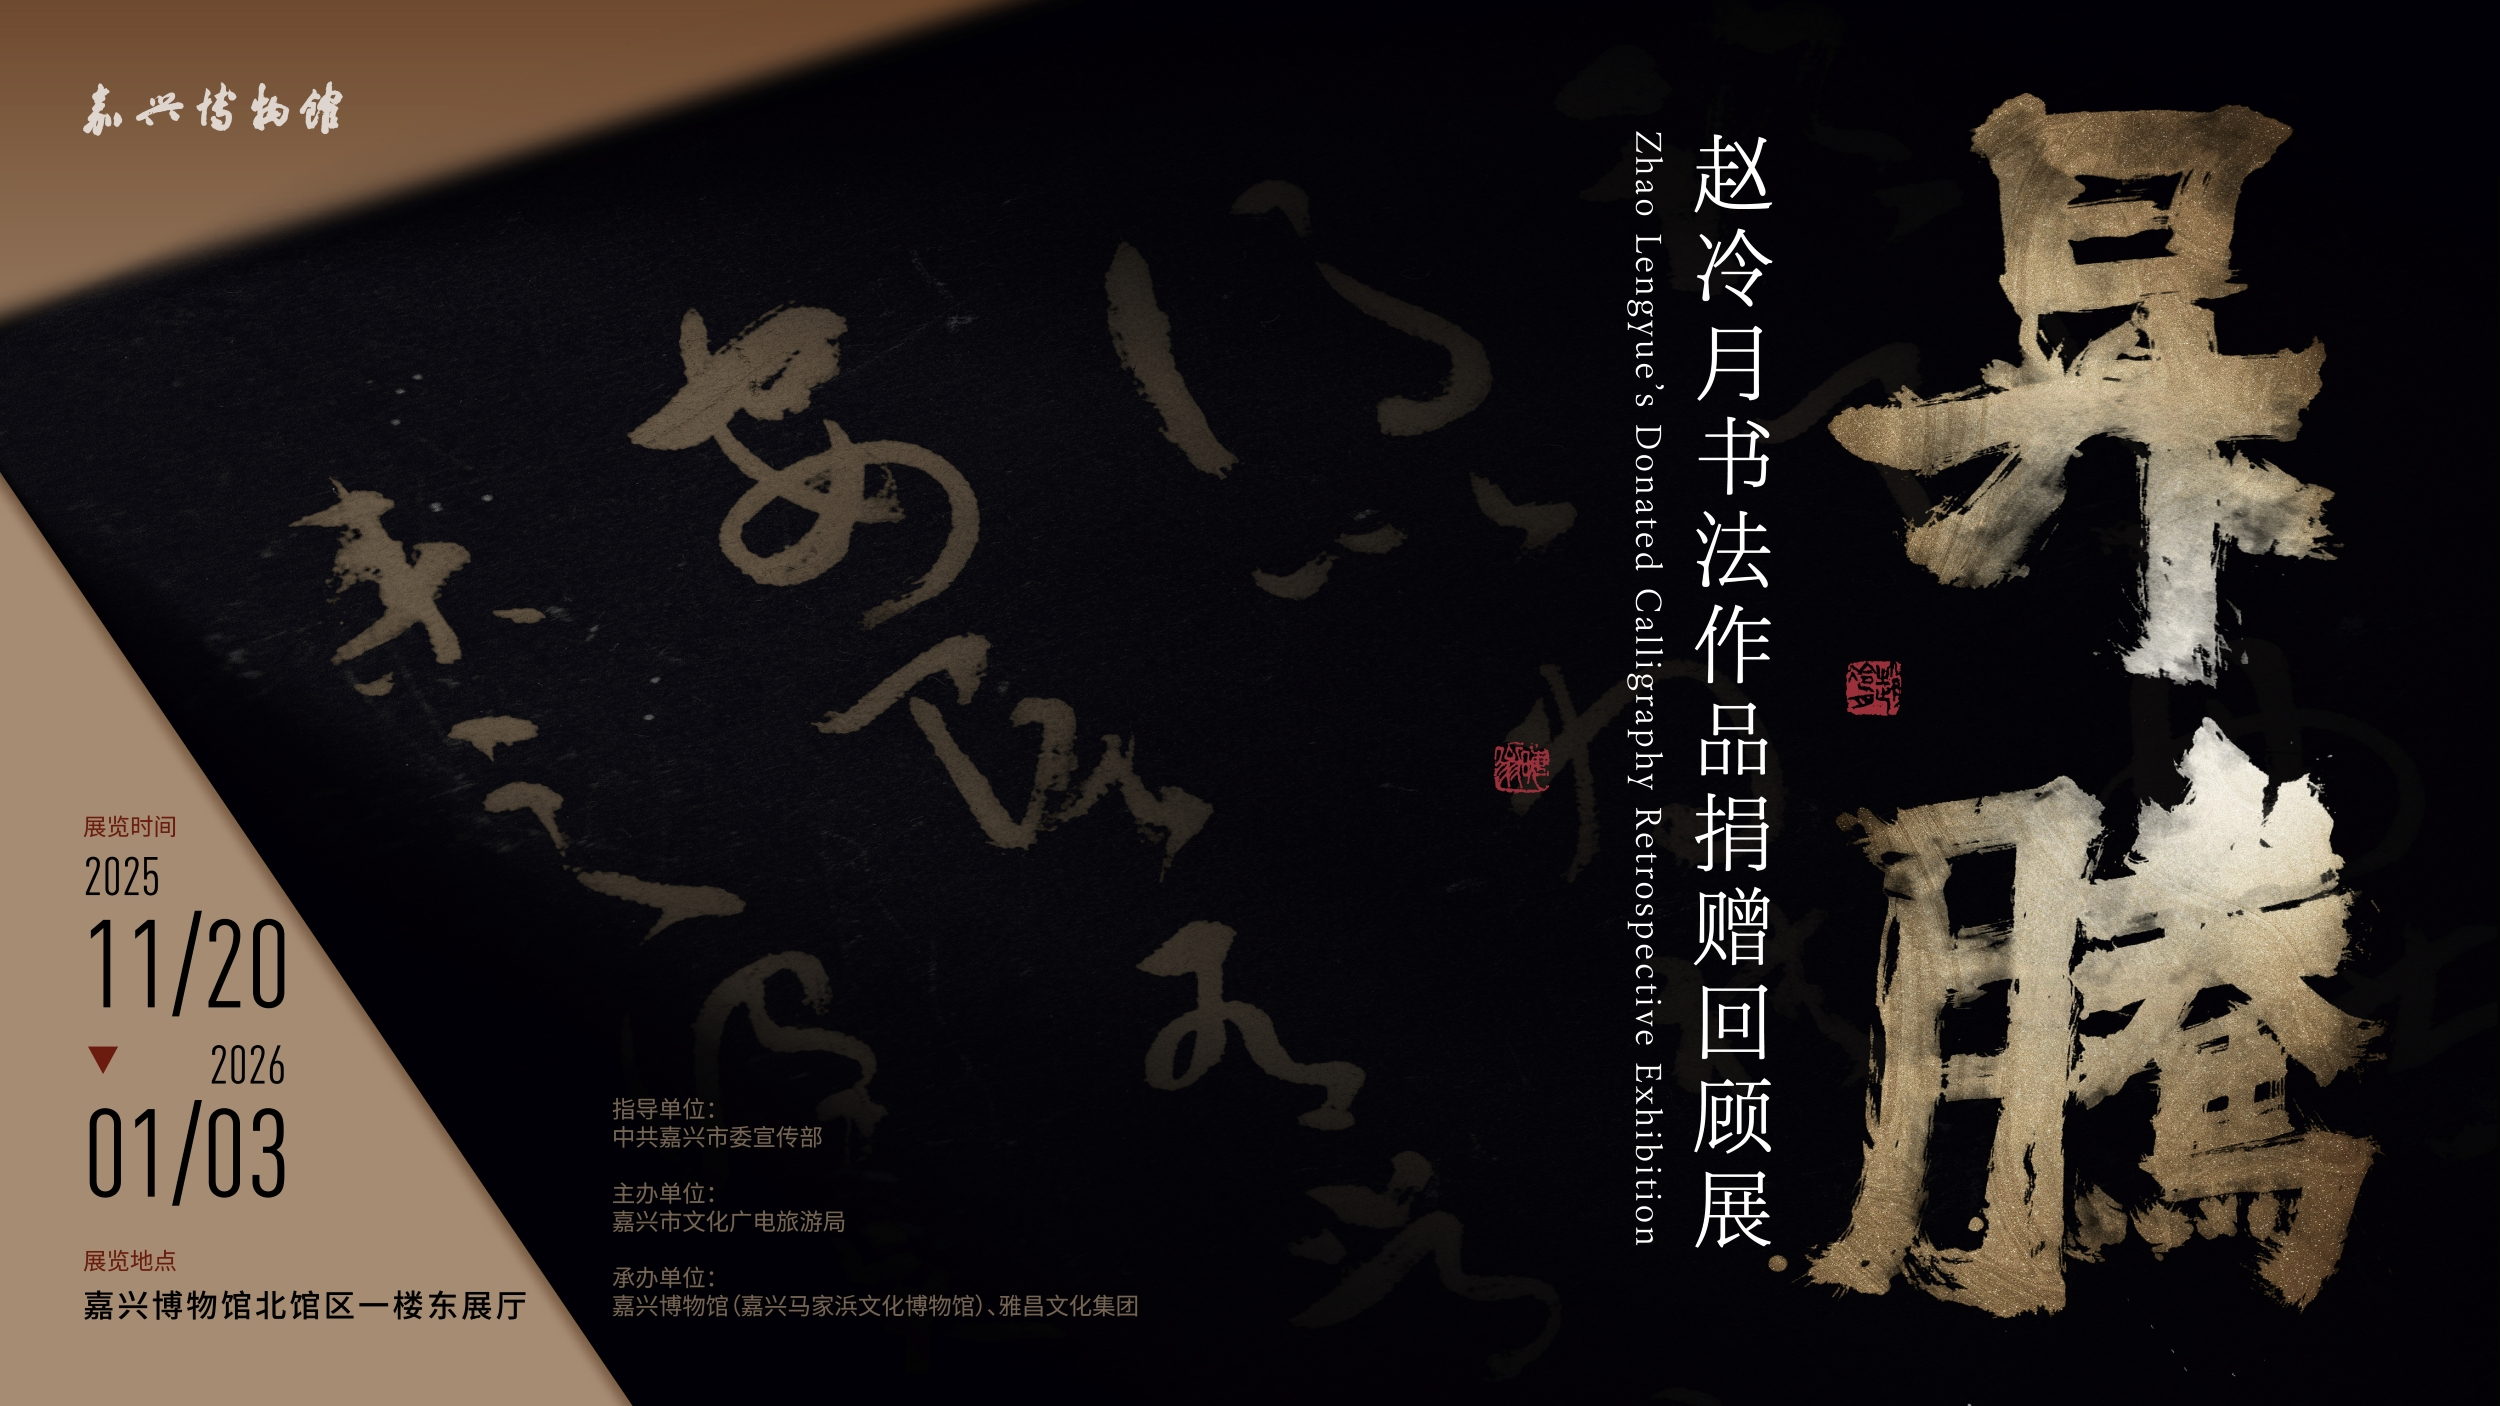 嘉兴博物馆
昇腾
赵冷月书法作品捐赠回顾展
Zhao Lengyue’s Donated Calligraphy Retrospective Exhibition
展览时间
2025
11/20
2026
01/03
展览地点
嘉兴博物馆北馆区一楼东展厅
指导单位：
中共嘉兴市委宣传部
主办单位：
嘉兴市文化广电旅游局
承办单位：
嘉兴博物馆（嘉兴马家浜文化博物馆）、雅昌文化集团